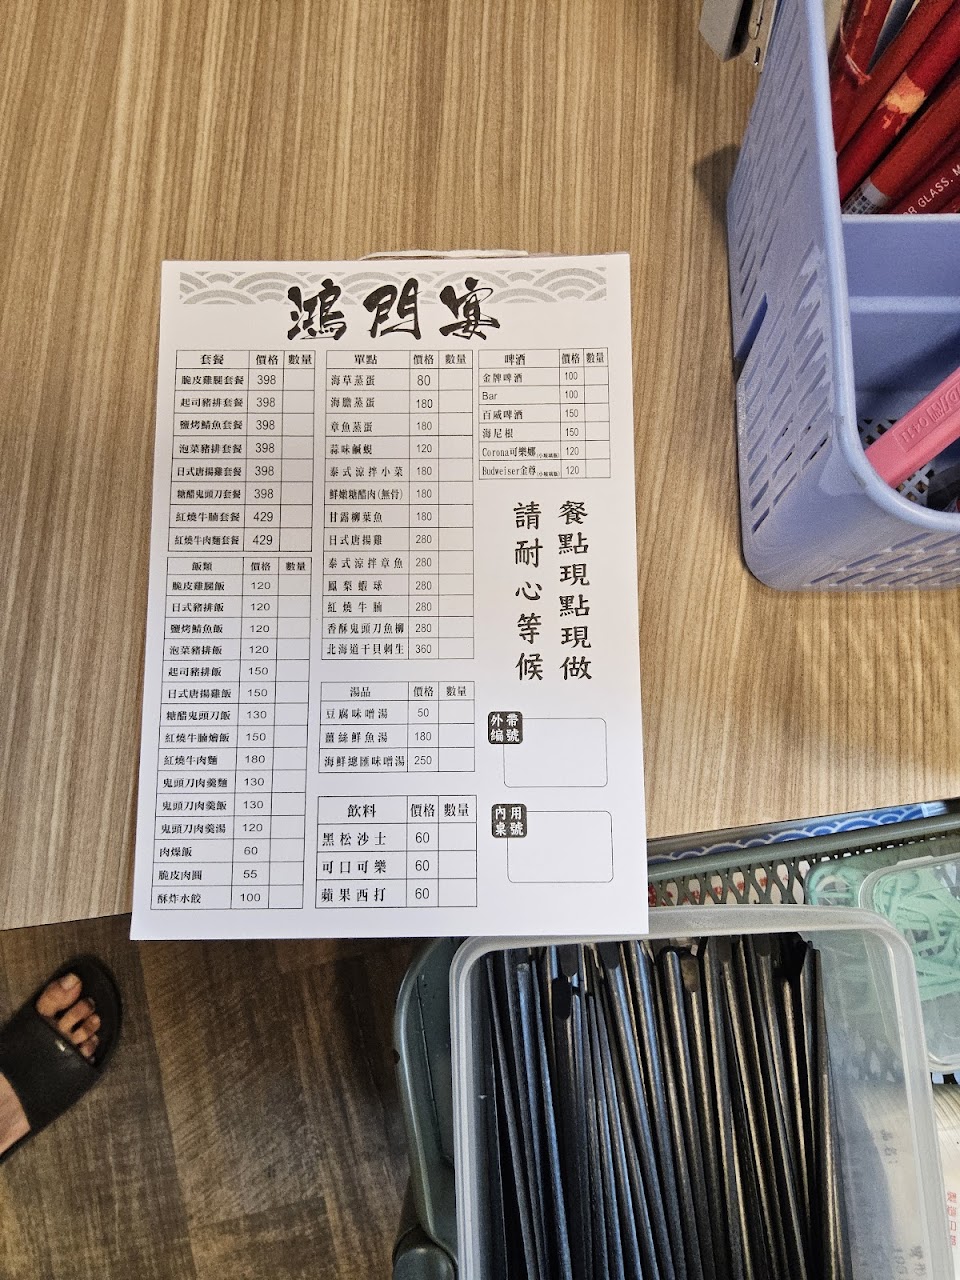 鴻門宴
套餐 價格 數量
脆皮雞腿套餐 398
起司豬排套餐 398
鹽烤鯖魚套餐 398
泡菜豬排套餐 398
日式唐揚雞套餐 398
糖醋鬼頭刀套餐 398
紅燒牛腩套餐 429
紅燒牛肉麵套餐 429
飯類 價格 數量
脆皮雞腿飯 120
日式豬排飯 120
鹽烤鯖魚飯 120
泡菜豬排飯 120
起司豬排飯 150
日式唐揚雞飯 150
糖醋鬼頭刀飯 130
紅燒牛腩燴飯 150
紅燒牛肉麵 180
鬼頭刀肉羹麵 130
鬼頭刀肉羹飯 130
鬼頭刀肉羹湯 120
肉燥飯 60
脆皮肉圓 55
酥炸水餃 100
單點 價格 數量
海草蒸蛋 80
海膽蒸蛋 180
章魚蒸蛋 180
蒜味鹹蜆 120
泰式涼拌小菜 180
鮮嫩糖醋肉(無骨) 180
甘露柳葉魚 180
日式唐揚雞 280
泰式涼拌章魚 280
鳳梨蝦球 280
紅燒牛腩 280
香酥鬼頭刀魚柳 280
北海道干貝刺生 360
湯品 價格 數量
豆腐味噌湯 50
薑絲鮮魚湯 180
海鮮總匯味噌湯 250
飲料 價格 數量
黑松沙士 60
可口可樂 60
蘋果西打 60
啤酒 價格 數量
金牌啤酒 100
Bar 100
百威啤酒 150
海尼根 150
Corona可樂娜(小玻璃瓶) 120
Budweiser金尊(小玻璃瓶) 120
餐點現點現做
請耐心等候
外帶
編號
內用
桌號
OR GLASS. M